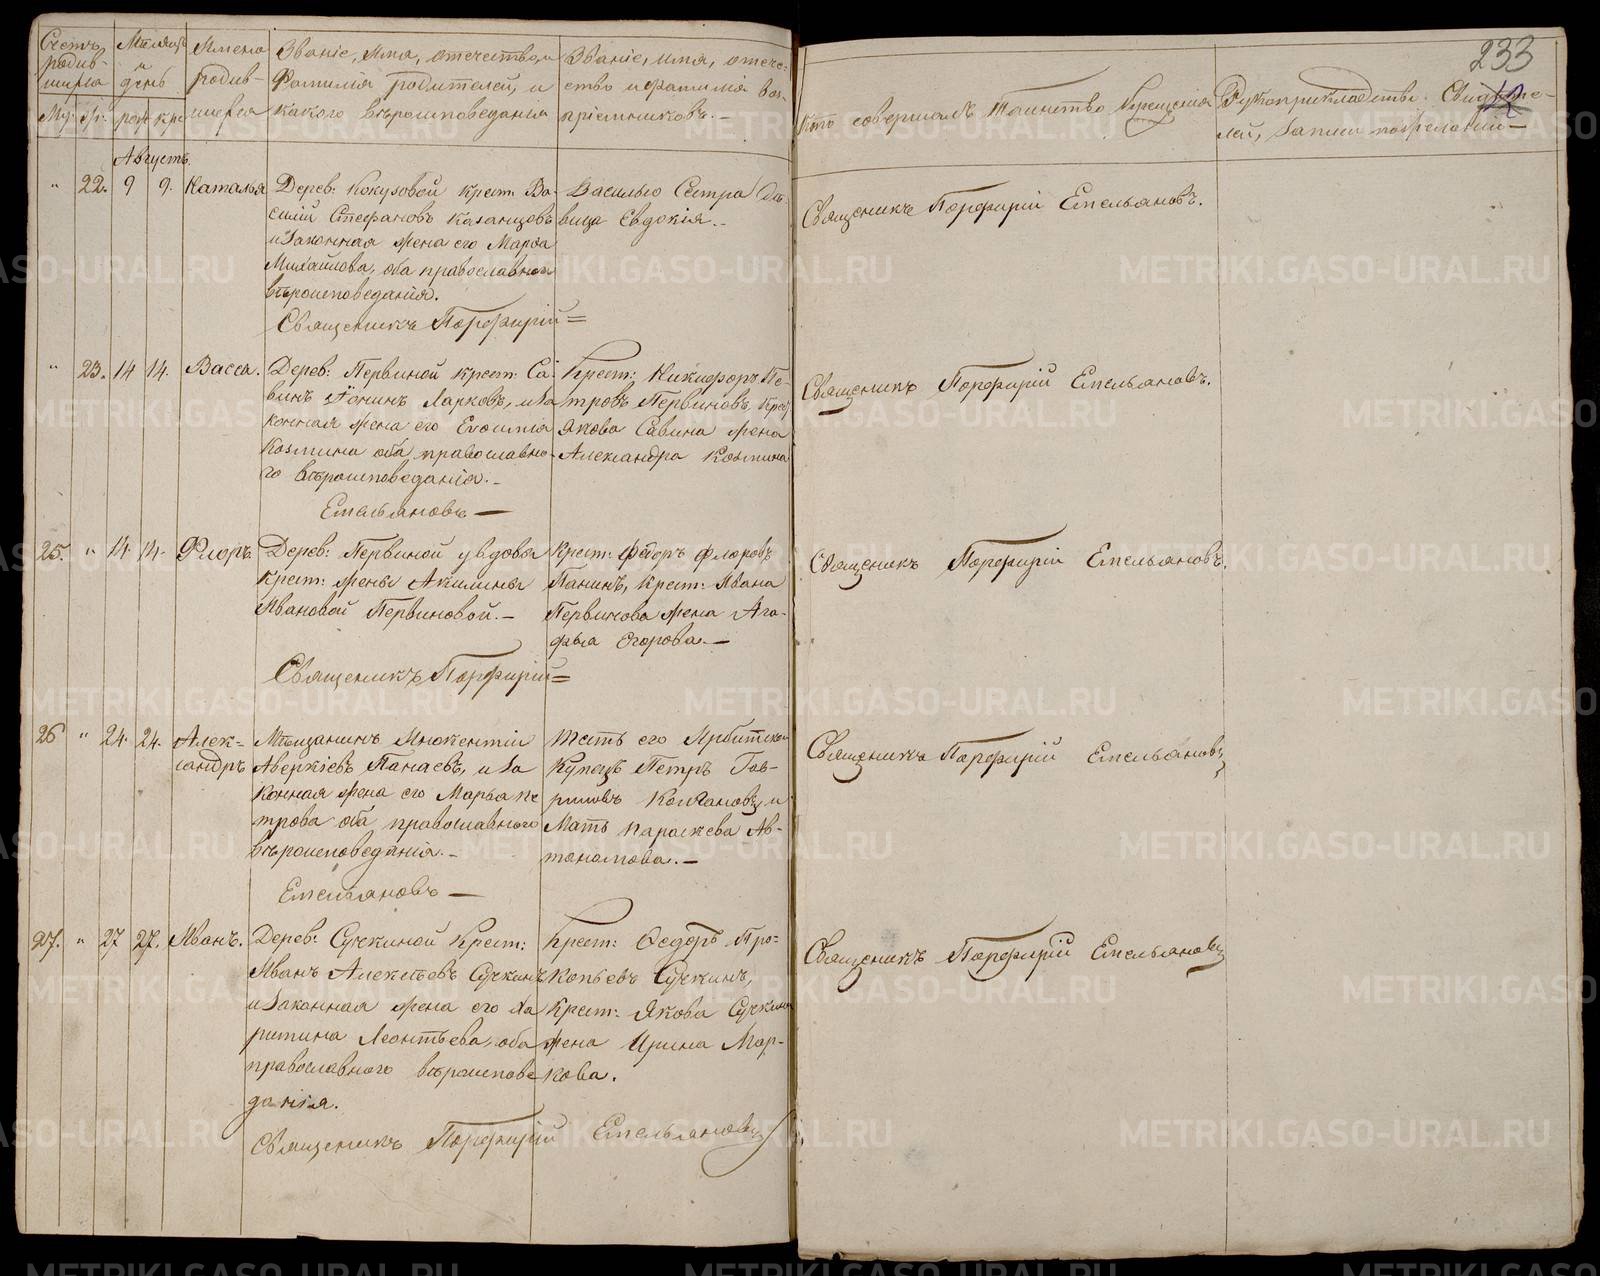 Счетъ родив-шихся
Му: Же:
Мѣсяцъ и день
рож кре
Имена родив-шихся
Званіе, имя, отчество, и
Фамилія родителей, и
какого вѣроисповеданія
Званіе, имя, отече-
ство и фамилія вос-
пріемниковъ.-
Августъ
" 22. 9 9. Наталья
Дерев: Кокузовой крест: Ва-
силій Стефановъ Казанцовъ
и законная жена его Марѳа
Михайлова, оба православнаго
вѣроисповеданія.
Василью Сестра Дѣ-
вица Евдокія.-
Священикъ Порфирій =
" 23. 14 14. Васса.
Дерев: Первиной крест: Са-
винъ Іонинъ Ларковъ, и за
конная жена его Евфимія
Козмина оба православно-
го вѣроисповеданія.-
Крест: Никифоръ Пе-
тровъ Первиновъ, крес
Якова Савина жена
Александра Козмина
Емельяновъ —
25. " 14. 14. Флоръ.
Дерев: Первиной у вдовы
крест: жены Акилины
Ивановой Первиновой.-
Крест: Фёдоръ Флоровъ
Панинъ, крест: Ивана
Первинова жена Ага-
фья Егорова.-
Священикъ Порфирій =
26 " 24. 24. Алек=
сандръ
Мѣщанинъ Инокентій
Аверкіевъ Панаевъ, и за
конная жена его Марья Пе
трова оба православнаго
вѣроисповеданія.-
Тесть его Ирбитской
Купецъ Петръ Гав-
риловъ Колчановъ, и
Мать Параскева Ав-
тономова.-
Емельяновъ —
27. " 27 27. Иванъ.
Дерев: Сучкиной Крест:
Иванъ Алексѣевъ Сучкинъ
и законная жена его Ха
ритина Леонтьева, оба
православнаго вѣроисповѣ
данія.
Крест: Ѳедоръ Про=
копьевъ Сучкинъ,
Крест: Якова Сучкина
жена Ирина Мар-
кова.
Священикъ Порфирій Емельяновъ
233
Кто совершалъ Таинство Крещенія
Рукоприкладство Свидѣте-
лей, записи по желанію —
Священикъ Порфирій Емельяновъ.
Священикъ Порфирій Емельяновъ.
Священикъ Порфирій Емельяновъ.
Священикъ Порфирій Емельяновъ
Священикъ Порфирій Емельяновъ
METRIKI.GASO-URAL.RU